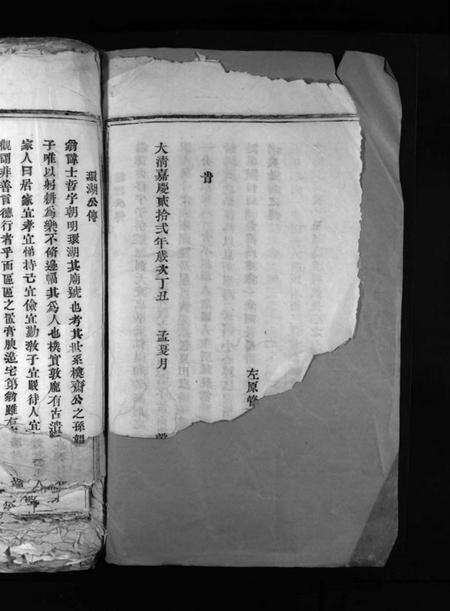 左原
肯
大清嘉慶貳拾弍年歲次丁丑 孟夏月
環湖公傳
翁諱士哲字朝明環湖其廟號也考其世系樸齋公之孫
子唯以躬耕為樂不脩邊幅其為人也樸實敦龐有古
家人曰居家宜孝宜悌持己宜儉宜勤教子宜嚴待人宜
觀謂非善言德行者乎而區區之置膏腴造宅第翁雖